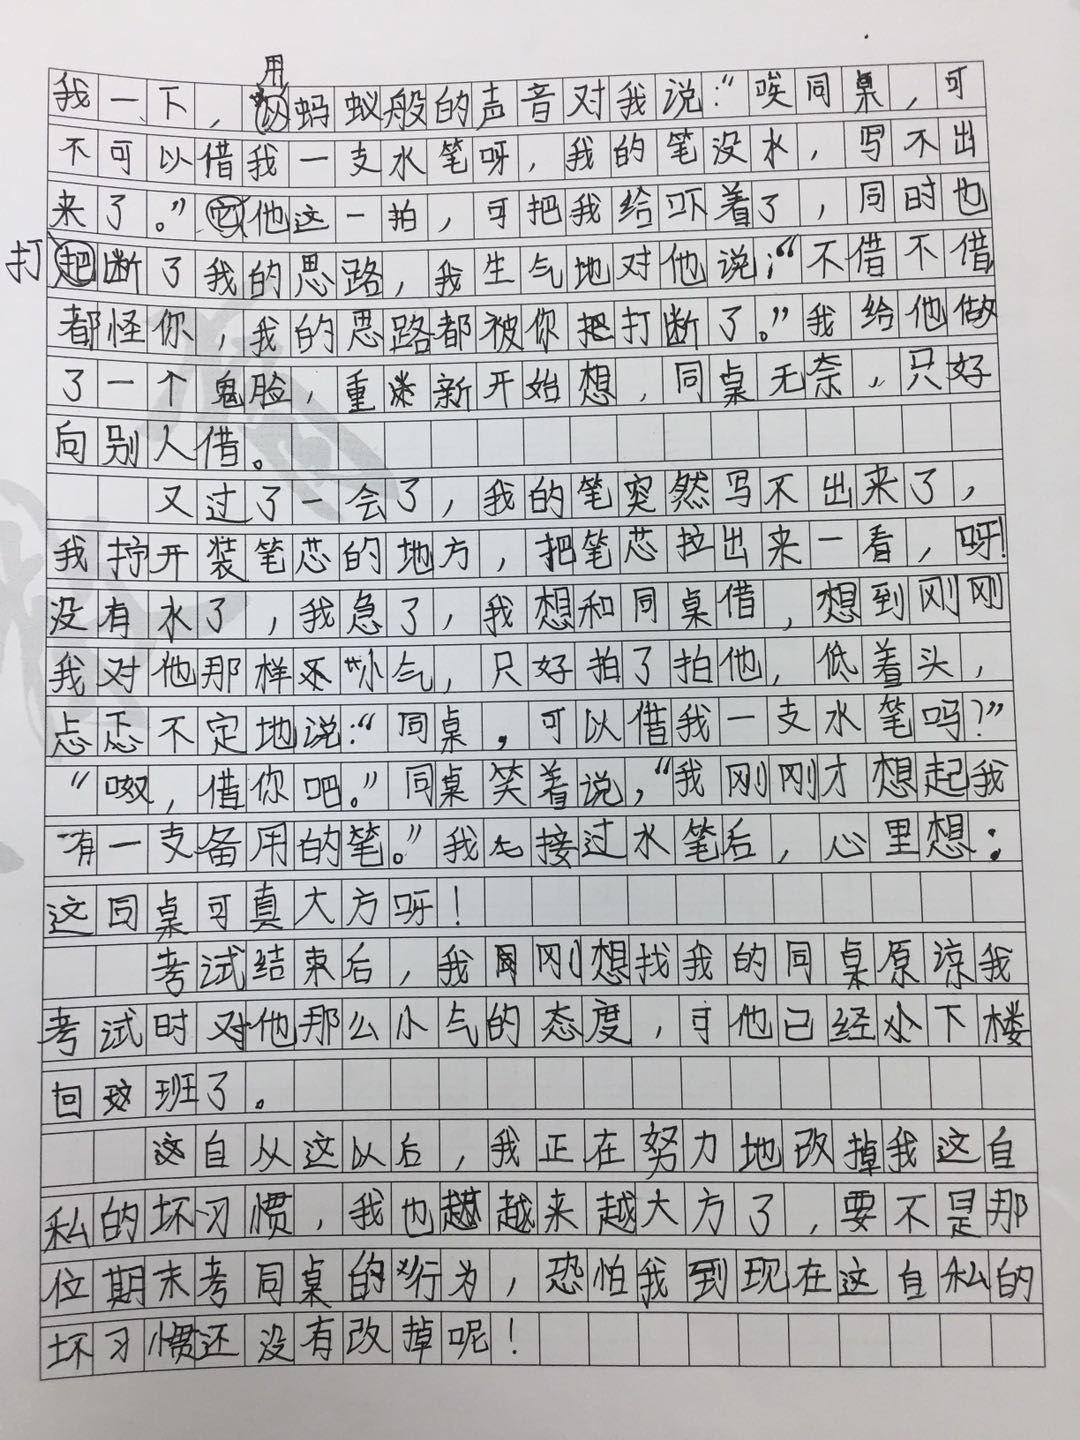 我一下，用蚂蚁般的声音对我说：“唉同桌，可
不可以借我一支水笔呀，我的笔没水，写不出
来了。”他这一拍，可把我给吓着了，同时也
打断了我的思路，我生气地对他说：“不借不借
都怪你，我的思路都被你把打断了。”我给他做
了一个鬼脸，重新开始想，同桌无奈，只好
向别人借。
又过了一会了，我的笔突然写不出来了，
我拧开装笔芯的地方，把笔芯拉出来一看，呀！
没有水了，我急了，我想和同桌借，想到刚刚
我对他那样小气，只好拍了拍他，低着头，
忐忑不定地说：“同桌，可以借我一支水笔吗？”
“呶，借你吧。”同桌笑着说，“我刚刚才想起我
有一支备用的笔。”我接过水笔后，心里想：
这同桌可真大方呀！
考试结束后，我刚想找我的同桌原谅我
考试时对他那么小气的态度，可他已经下楼
回班了。
自从这以后，我正在努力地改掉我这自
私的坏习惯，我也越来越大方了，要不是那
位期末考同桌的行为，恐怕我到现在这自私的
坏习惯还没有改掉呢！